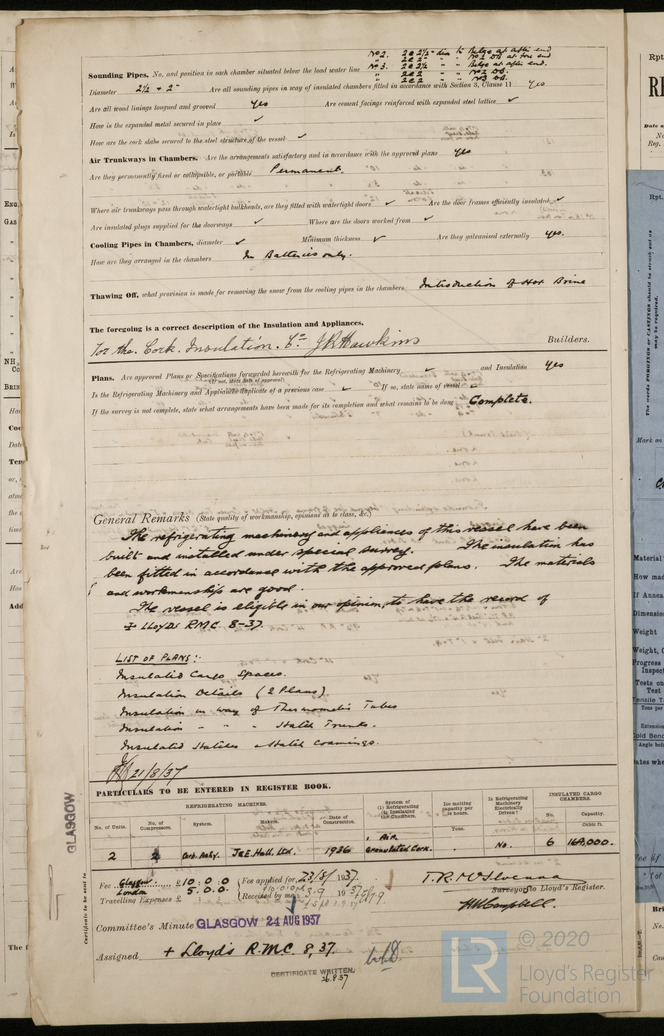 No 2. 2 @ 2½" dia to Bilge at after end
" 2 @ 2" " " No 1 DB at fore end
No 3. 2 @ 2½ " " Bilge at after end.
" 2 @ 2 " " No 2 DB.
" 2 @ 2 " " No 3 DB.
Sounding Pipes, No. and position in each chamber situated below the load water line
Diameter 2½ + 2" Are all sounding pipes in way of insulated chambers fitted in accordance with Section 3, Clause 11 Yes
Are all wood linings tongued and grooved Yes Are cement facings reinforced with expanded steel lattice ✓
How is the expanded metal secured in place ✓
How are the cork slabs secured to the steel structure of the vessel ✓
Air Trunkways in Chambers. Are the arrangements satisfactory and in accordance with the approved plans Yes
Are they permanently fixed or collapsible, or portable Permanent.
Where air trunkways pass through watertight bulkheads, are they fitted with watertight doors ✓ Are the door frames efficiently insulated ✓
Are insulated plugs supplied for the doorways ✓ Where are the doors worked from ✓
Cooling Pipes in Chambers, diameter ✓ Minimum thickness ✓ Are they galvanised externally yes.
How are they arranged in the chambers In Batteries only.
Thawing Off, what provision is made for removing the snow from the cooling pipes in the chambers Introduction of Hot Brine
The foregoing is a correct description of the Insulation and Appliances.
For the Cork Insulation Co. J R Hawkins Builders.
Plans. Are approved Plans or Specifications forwarded herewith for the Refrigerating Machinery ✓ and Insulation Yes
(If not, state date of approval)
Is the Refrigerating Machinery and Appliances duplicate of a previous case ✓ If so, state name of vessel ✓
If the survey is not complete, state what arrangements have been made for its completion and what remains to be done Complete.
General Remarks (State quality of workmanship, opinions as to class, &c.)
The refrigerating machinery and appliances of this vessel have been
built and installed under special survey. The insulation has
been fitted in accordance with the approved plans. The materials
and workmanship are good.
The vessel is eligible in our opinion, to have the record of
+ LLOYDS RMC 8-37.
LIST OF PLANS:-
Insulated Cargo Spaces.
Insulation Details (2 Plans)
Insulation in way of Thermometer Tubes
Insulation " " " Hatch Trunks.
Insulated Hatches & Hatch Coamings.
21/8/37
GLASGOW
Certificate to be sent to
PARTICULARS TO BE ENTERED IN REGISTER BOOK.
REFRIGERATING MACHINES.
No. of Units. No. of Compressors. System. Makers. Date of Construction. System of (1) Refrigerating (2) Insulating the Chambers. Ice melting capacity per 24 hours. Tons. Is Refrigerating Machinery Electrically Driven? INSULATED CARGO CHAMBERS. No. Capacity. Cubic ft.
2 2 Carb. Anhy. J & E. Hall. Ltd. 1936 Air Granulated Cork. No. 6
Fee Glasgow £10:0:0 Fee applied for, 23/8/1937.
London 5.0.0
Travelling Expenses £ Received by me, 3.9 1937
T. R. McIlvenna
Surveyor to Lloyd's Register.
Campbell.
Committee's Minute GLASGOW 24 AUG 1937
Assigned + Lloyd's R.M.C. 8,37.
CERTIFICATE WRITTEN.
26.8.37
LR
© 2020
Lloyd's Register
Foundation